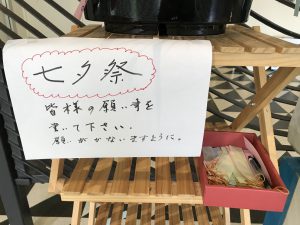 七夕祭
皆様の願い事を
書いて下さい。
願いがかないますように。